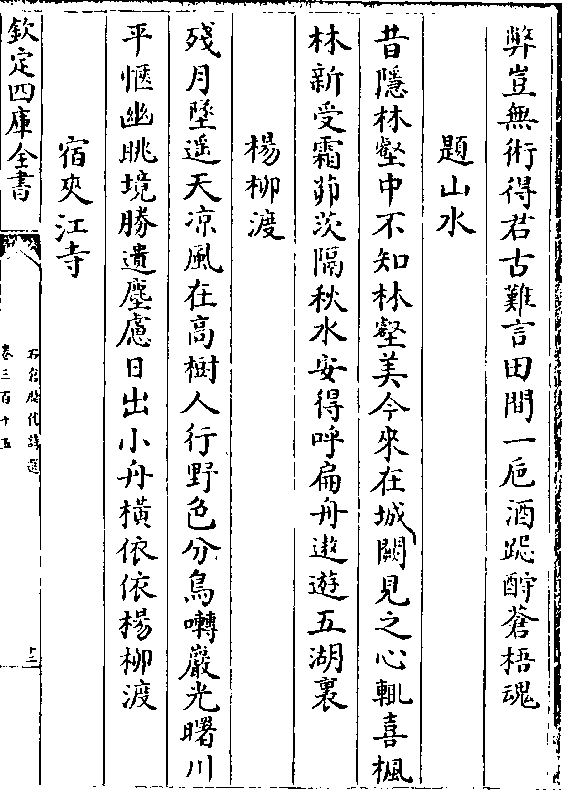 弊豈無術得君古難言田間一卮酒跽酹蒼梧魂
題山水
昔隱林壑中不知林壑美今來在城闕見之心輒喜楓
林新受霜茆茨隔秋水安得呼扁舟遨遊五湖裏
楊柳渡
殘月墜遥天凉風在高樹人行野色分鳥囀嚴光曙川
平愜幽眺境勝遺塵慮日出小舟橫依依楊柳渡
宿夾江寺
欽定四庫全書
石倉歷代詩選
卷三百十五
十二